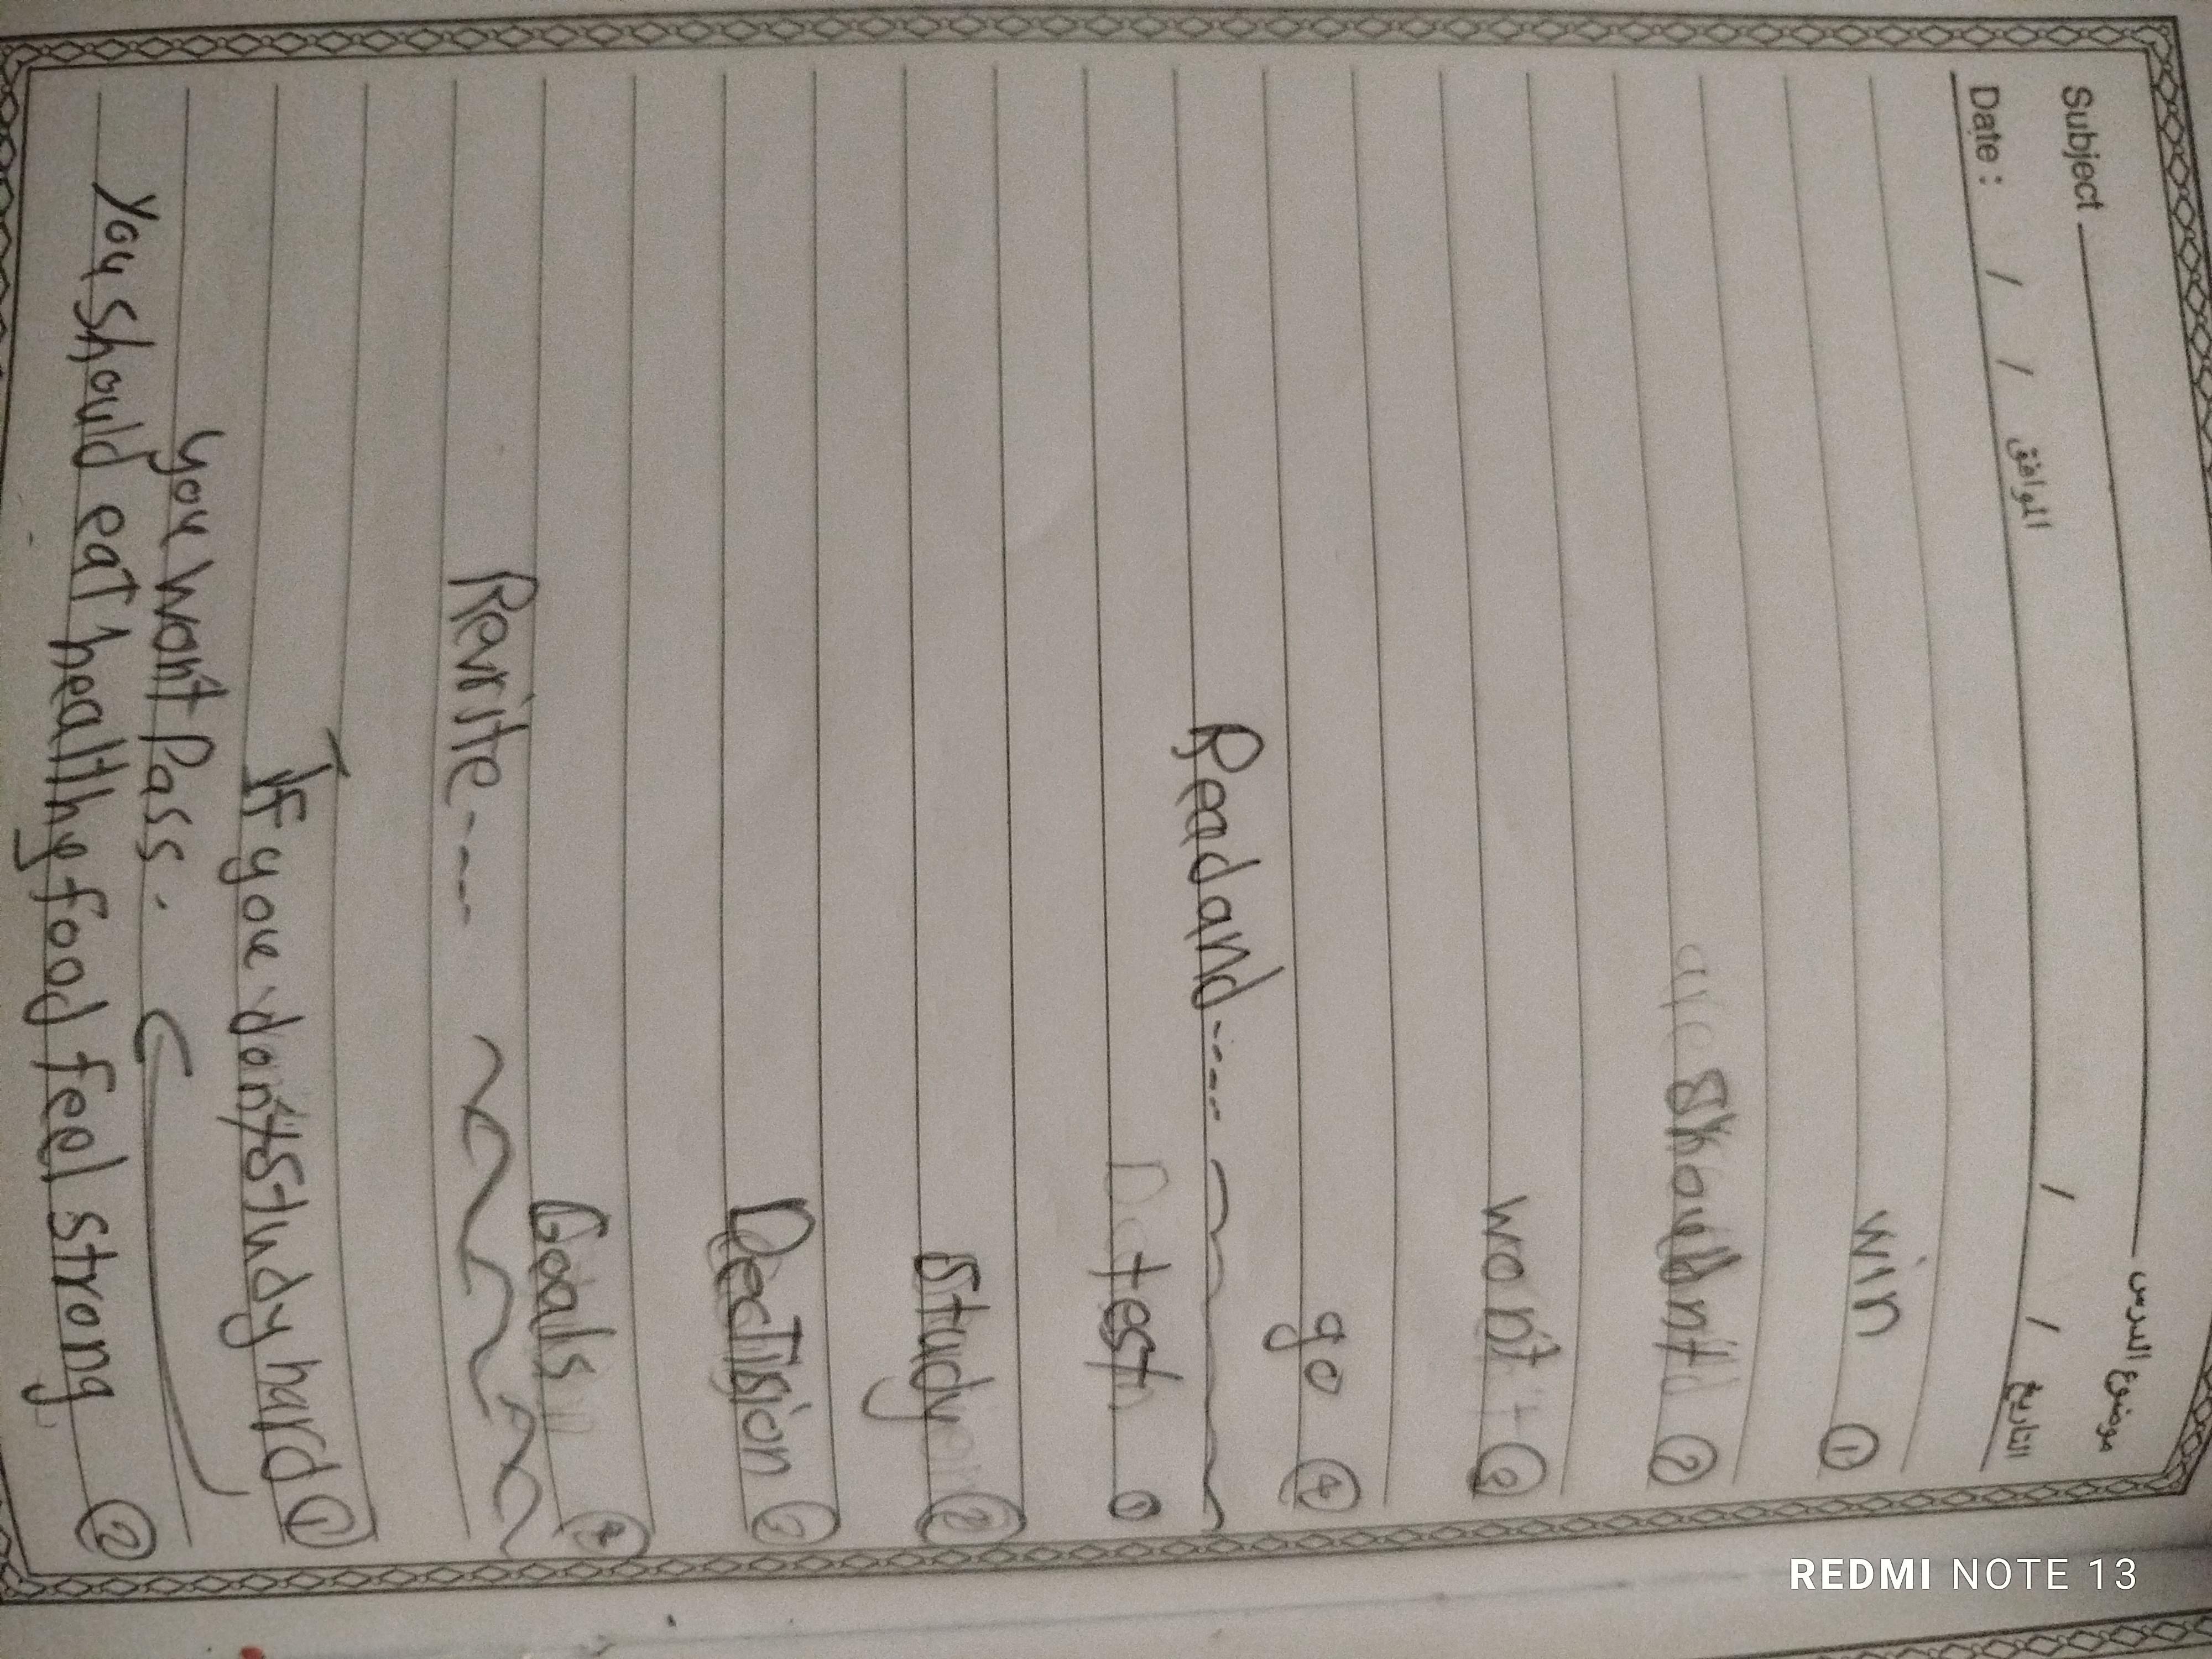 Subject موضوع الدرس
Date : / / الموافق / / التاريخ
win ①
shouldn't ②
won't ③
go ④
Read and -----
test ①
study ②
Dectision ③
Goals ④
Rewrite ----
If you don't study hard ①
you won't Pass.
You should eat healthy food feel strong ②
REDMI NOTE 13